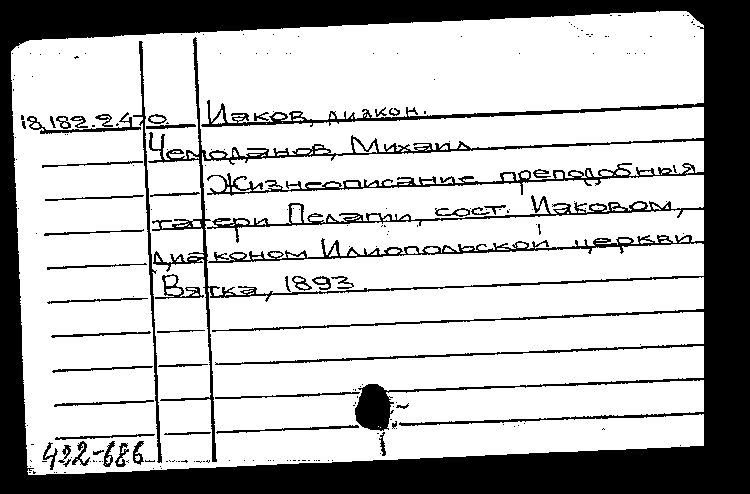 18.182.2.470. Иаков, диакон.
Чемоданов, Михаил
Жизнеописание преподобныя
матери Пелагии, сост. Иаковом,
диаконом Илиопольской церкви
Вятка, 1893.
422-686